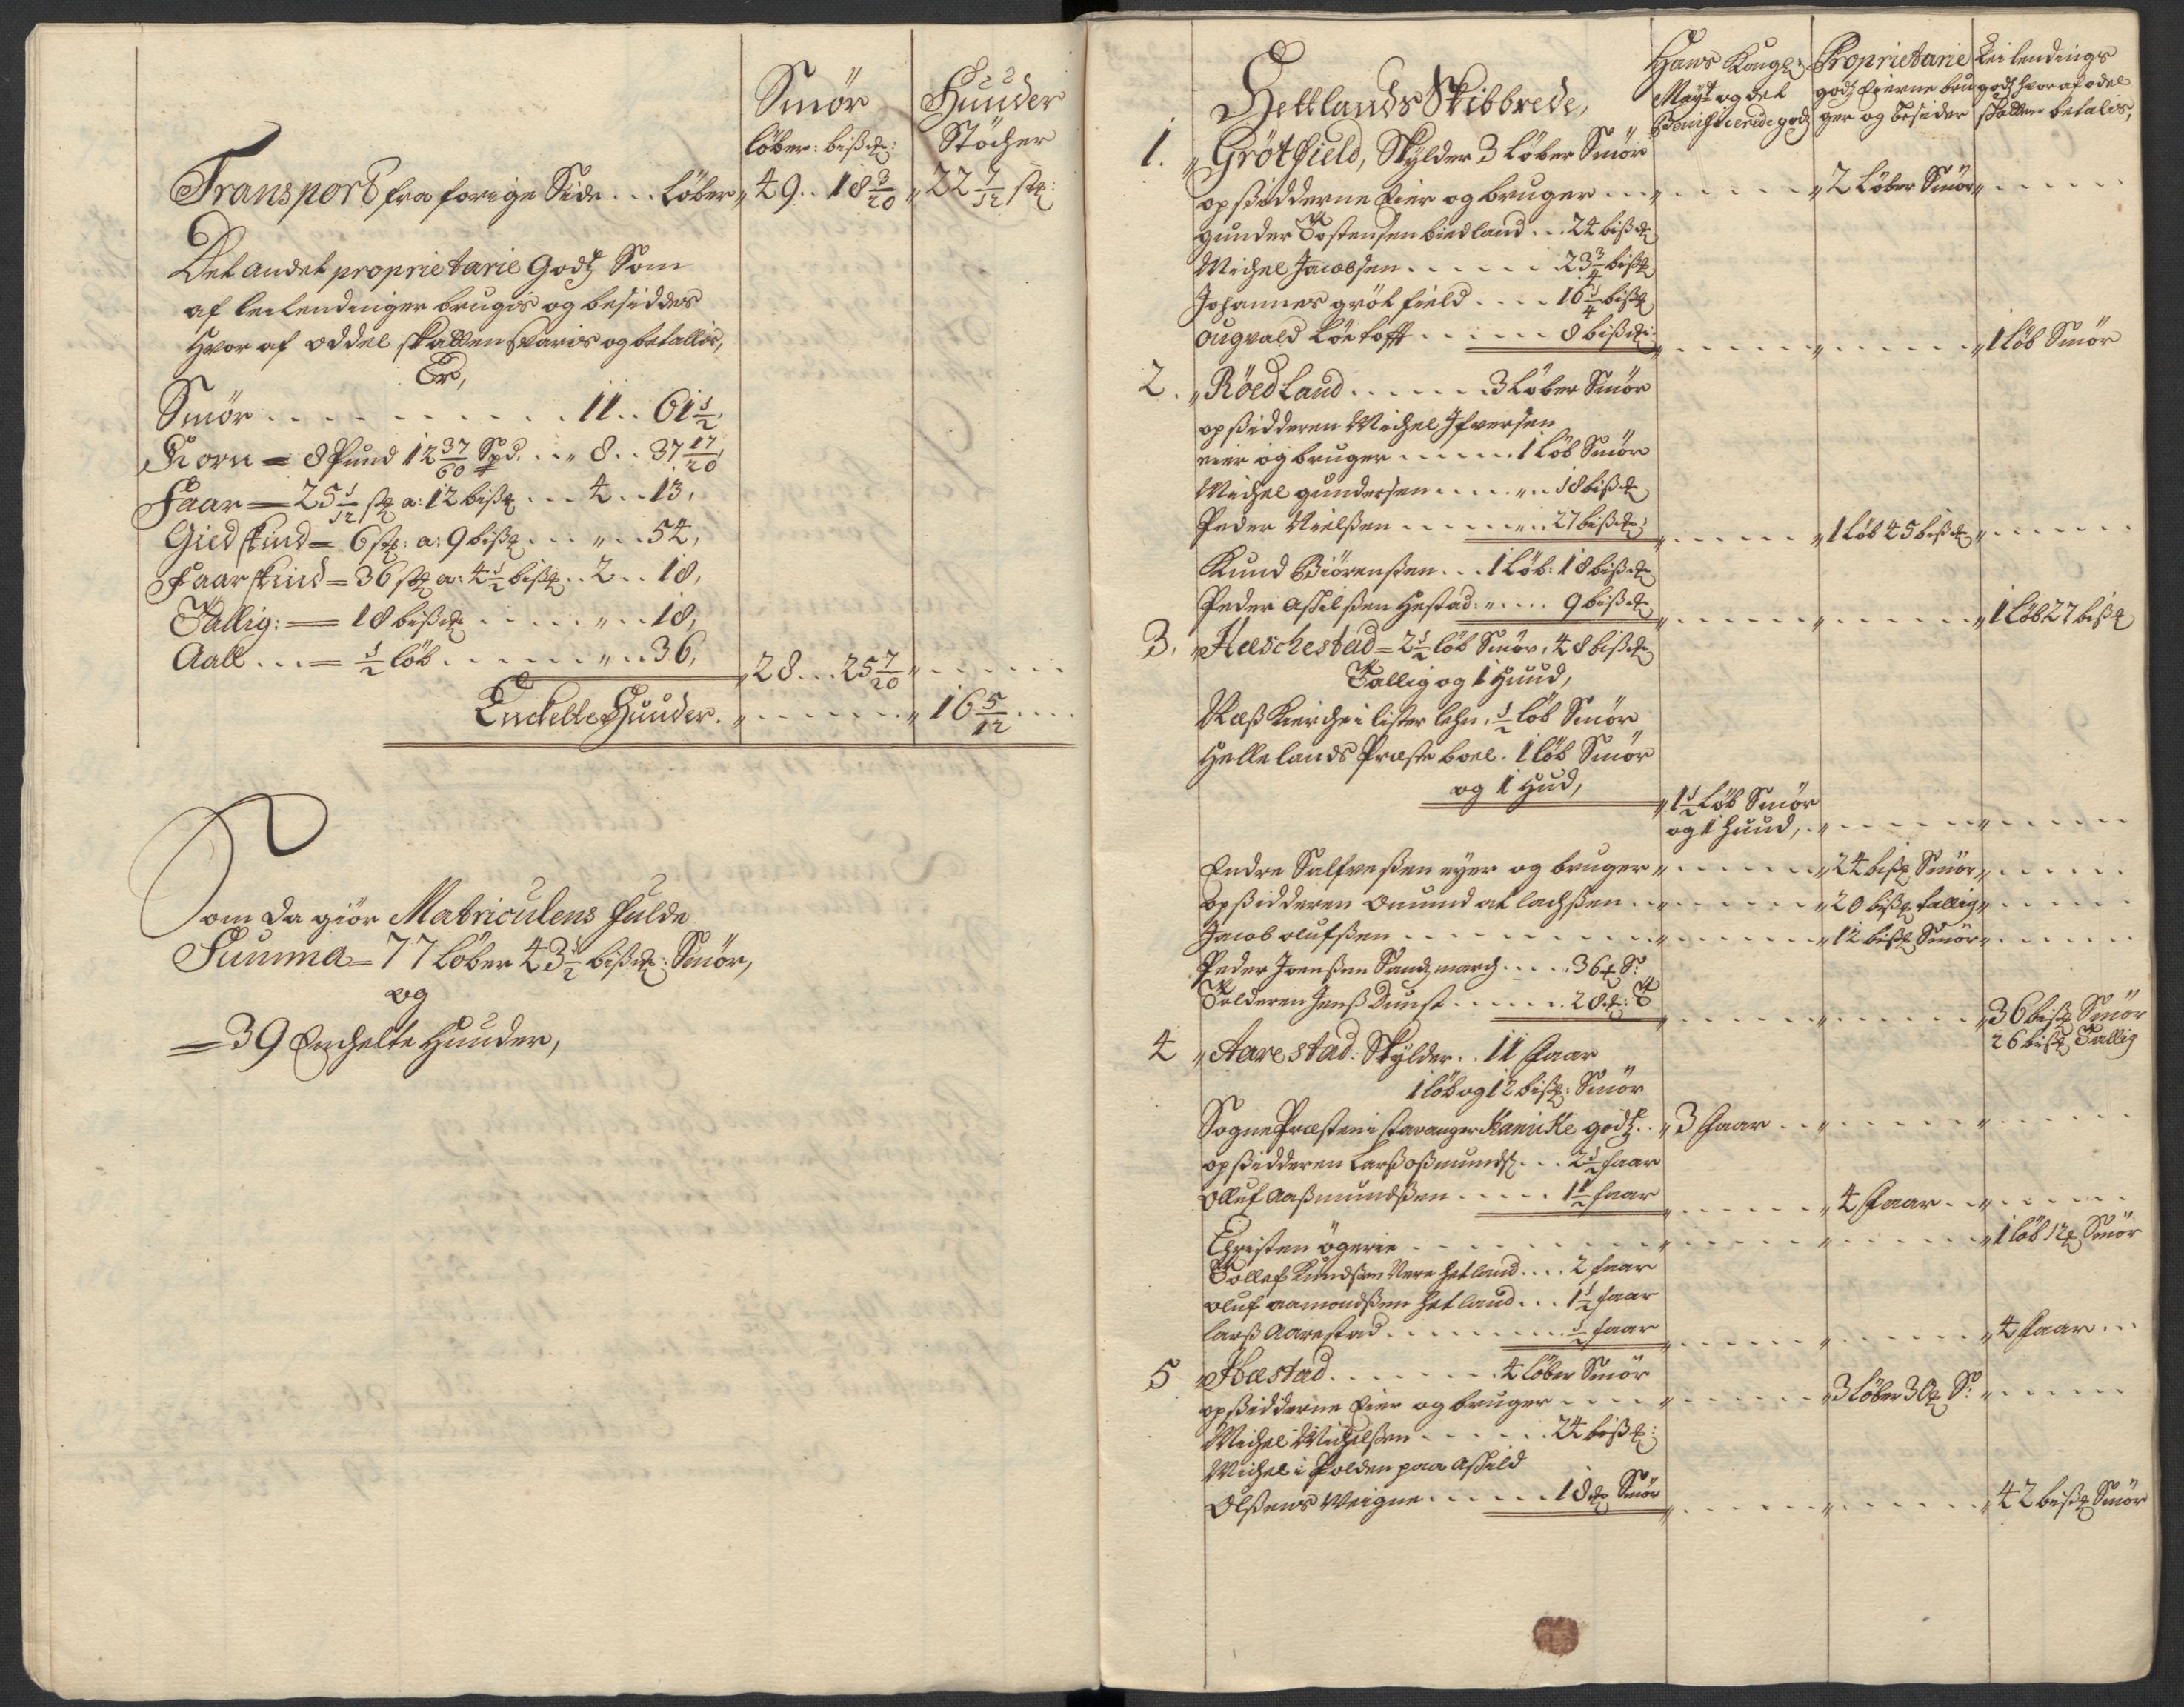 Smör Huuder
löber: bißℳ: Stöcher
Transport fra forige Side . . . Löber 49 . . 18 3/20 22 7/12 stℳ:
Det andet proprietarie Godtz Som
af leilendinger brugis og besiddes
Hvor af oddel skatten svaris og betallis,
Er,
Smör . . . . . . . . . . . . 11 . . 61 1/2
Korn = 8 Pund 12 37/60 Spd. . . „ 8 . . 37 17/20
Faar = 25 1/12 st a: 12 biß . . . 4 . . 13,
Giedskind = 6 st: a: 9 biß . . . „ . . 54,
Faarskind = 36 st a: 4 1/2 biß . . 2 . . 18,
Tallig: = 18 biß . . . . . „ . . 18,
Aall . . . = 1/2 löb . . . . . . „ . . 36, 28 . . . 25 7/20 „ . . . . .
Enckelte Huuder. „ . . . . . . . „ 16 5/12 . . . .
Som da giör Matriculens fulde
Summa = 77 Löber 43 1/2 biß: Smör,
og
= 39 Enchelte Huuder,
Hetlands Skibbrede,
Hans Kongl: Mayt og det Benificerede godz
Proprietarie godz Eierne bruger og besider
Leilendings godz hvor af odel skatten betalis,
1. „ Grötfield, Skylder 3 Löber Smör
opsidderne Eier og bruger . . . „ . . . . . „ 2 Löber Smör „ . . . . .
gunder Tostensen birdland . . . 24 biß
Michel Jacobsen . . . . . . 23 3/4 biß
Johannes grötfield . . . . 16 1/4 biß
Augvald Löetofft . . . . . . 8 biß: „ . . . . . „ . . . . . „ 1 Löb Smör
2. „ Röedland . . . . . . 3 Löber Smör
opsidderen Michel Ifversen
eier og bruger . . . . . . 1 Löb Smör
Michel gundersen . . . . . „ . . 18 biß
Peder Nielßen . . . . . . „ . . 27 biß: „ . . . . . „ 1 Löb 45 biß „ . . . . .
Knud Biörenßen . . . 1 Löb: 18 biß
Peder Aßilßen Hestad: „ . . . . 9 biß „ . . . . . „ . . . . . „ 1 Löb 27 biß
3. „ Heeschestad = 2 1/2 löb Smör, 48 biß
Tallig og 1 Huud,
Næß Kierche i lister lehn, 1/2 löb Smör
Hellelands Præste boel . 1 löb Smör
og 1 Hud, „ 1 1/2 Löb Smör
og 1 Huud, . „ . . . . . „ . . . . .
Endre Salfveßen eyer og bruger „ . . . . . „ 24 biß Smör „ . . . . .
opsidderen Omund atlachßen . . „ . . . . . „ 20 biß tallig „ . . . . .
Jacob olufßen . . . . . . . . . . „ . . . . . „ 12 biß Smör „ . . . . .
Peder Joenßen Sandmarch . . . . 36 S:
Tolderen Jenß Dunst . . . . . . 28: T „ . . . . . „ . . . . . „ 36 biß Smör
26 biß Tallig
4 „ Aarestad: Skylder . . 11 Faar
1 löb og 12 biß: Smör
Sogne Præsten i stavanger Kanicke godz . . „ 3 Faar . . „ . . . . . „ . . . . .
opsidderen Larß oßmunds . . . 2 1/2 faar
Olluf Aaßmundßen . . . . . 1 1/2 faar „ . . . . . „ 4 Faar . . „ . . . . .
Christen ögerie . . . . . . . . . „ . . . . . „ . . . . . „ 1 löb 12 Smör
Tollef Knudßen Nere hetland . . . . 2 faar
oluf aamondßen hetland . . . 1 1/2 faar
larß Aarestad . . . . . . . . 1/2 faar „ . . . . . „ . . . . . „ 4 Faar . . .
5 „ Hæstad . . . . . . . 4 löber Smör
opsidderne Eier og bruger . . . . „ . . . . . „ 3 löber 30 S: „ . . . . .
Michel Michelßen . . . . . . 24 biß:
Michel i Folden paa Aßild
Olßens Weigne . . . . . . 18 Smör „ . . . . . „ . . . . . „ 42 biß Smör